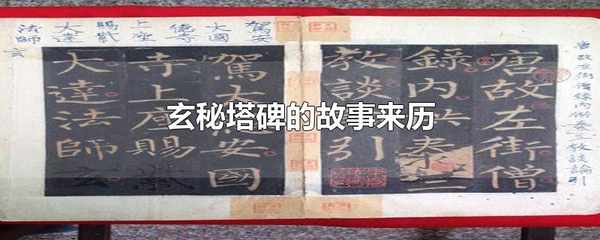 玄秘塔碑的故事来历
唐故左街僧
錄內供奉三
教談引
駕大安國
寺上座賜紫
大達法師玄
唐故左街僧錄內供奉三教談論引
駕大德安國寺上座賜紫大達法師玄